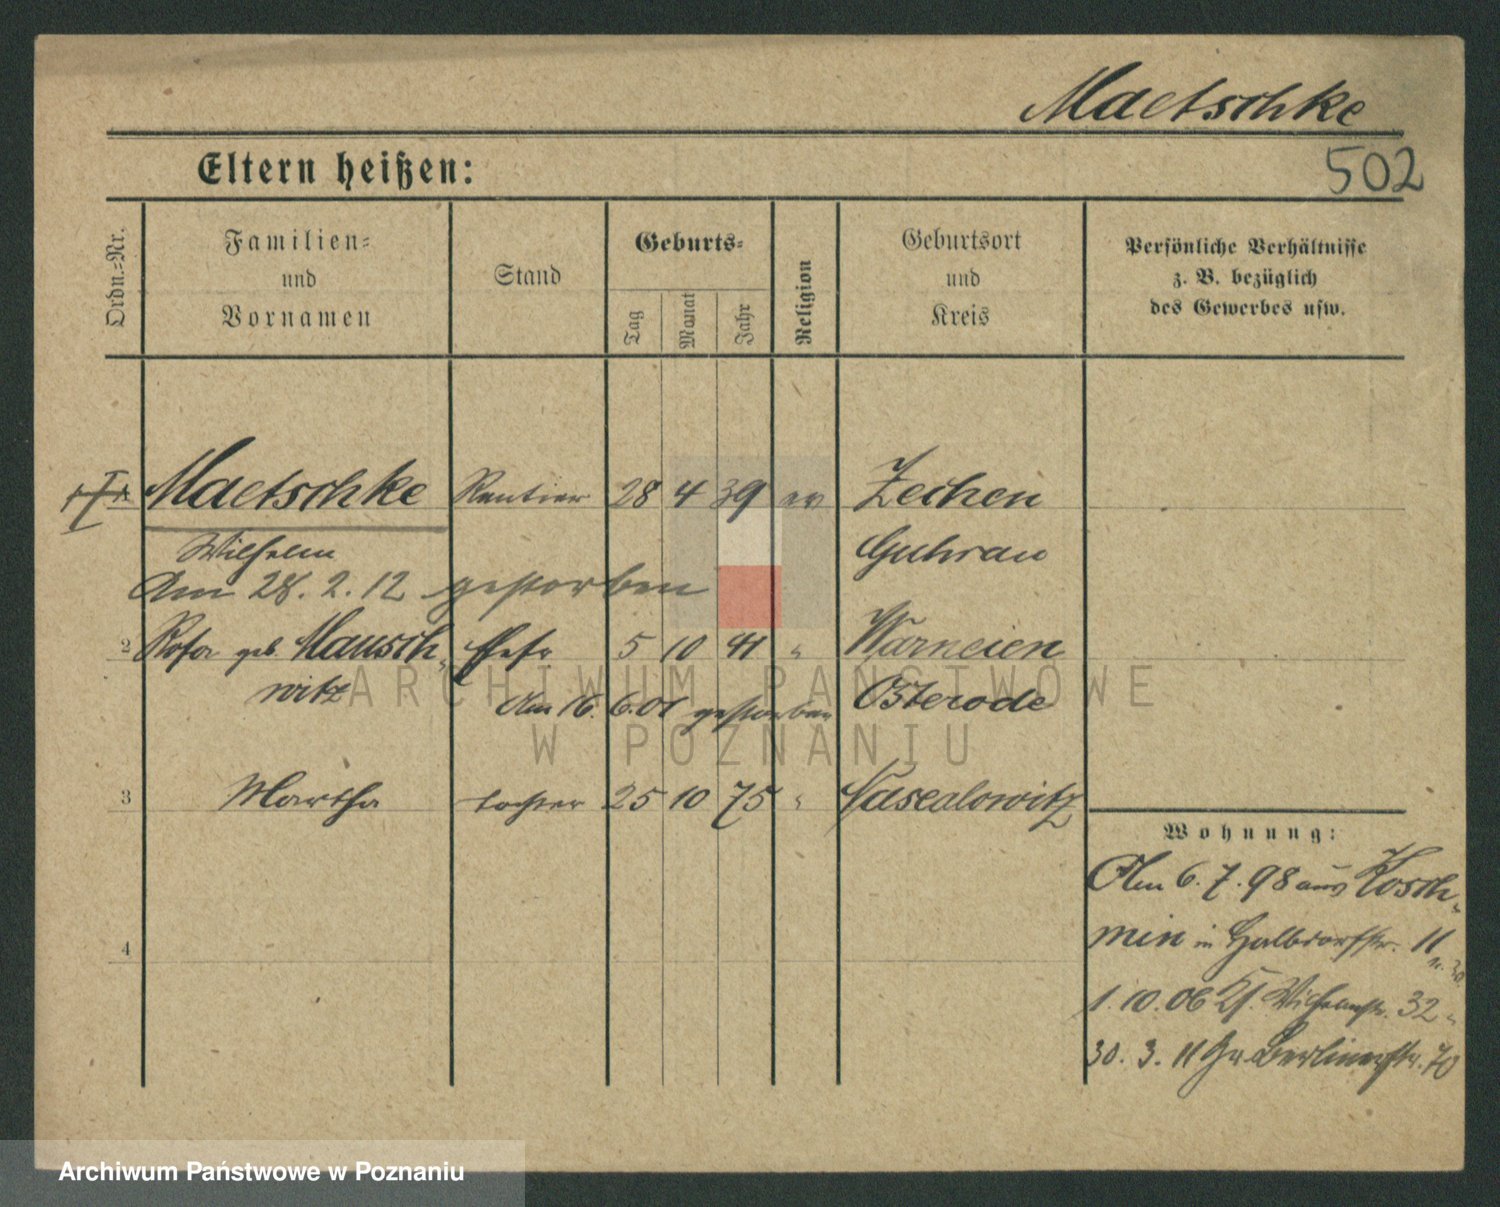 Maetschke
502
Eltern heißen:
Ordn.-Nr.
Familien-
und
Vornamen
Stand
Geburts-
Tag
Monat
Jahr
Religion
Geburtsort
und
Kreis
Persönliche Verhältnisse
z. B. bezüglich
des Gewerbes usw.
Maetschke Rentier 28 4 39 ev Zechen
Wilhelm Guhrau
Am 28. 2. 12 gestorben
2 Rosa geb. Mausch- Ehefr 5 10 41 " Warneien
witz Osterode
Am 16. 6.01 gestorben
ARCHIWUM PAŃSTWOWE
W POZNANIU
3 Martha Tochter 25 10 75 "
Wohnung:
Am 6. 7. 98 aus Kosch-
min in Halbdorfstr. 11
1. 10. 06 Wilhelmstr. 32
30. 3. 11 Gr. Berlinerstr. 70
4
Archiwum Państwowe w Poznaniu